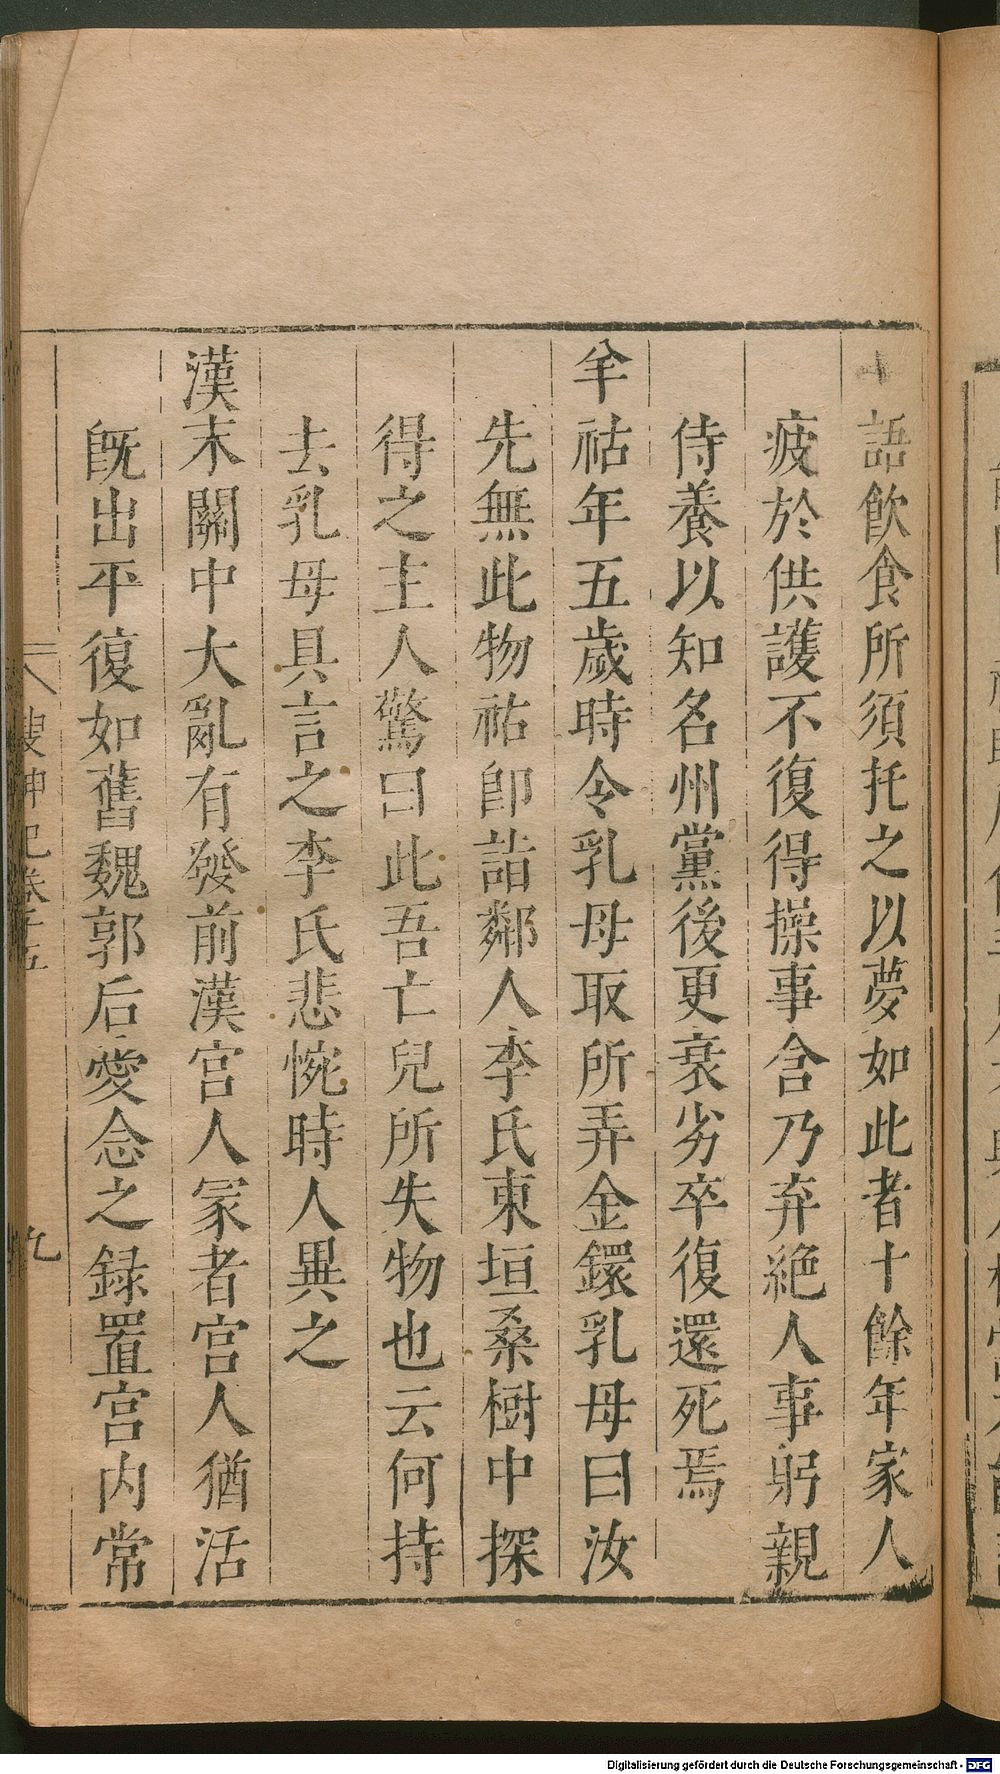 語飮食所須托之以夢如此者十餘年家人
疲於供護不復得操事含乃弃絶人事躬親
侍養以知名州黨後更衰劣卒復還死焉
羊祜年五歲時令乳母取所弄金鐶乳母曰汝
先無此物祜卽詣鄰人李氏東垣桑樹中探
得之主人驚曰此吾亡兒所失物也云何持
去乳母具言之李氏悲惋時人異之
漢末關中大亂有發前漢宫人冡者宫人猶活
旣出平復如舊魏郭后愛念之録置宫内常
搜神記卷十五
九
Digitalisierung gefördert durch die Deutsche Forschungsgemeinschaft - DFG